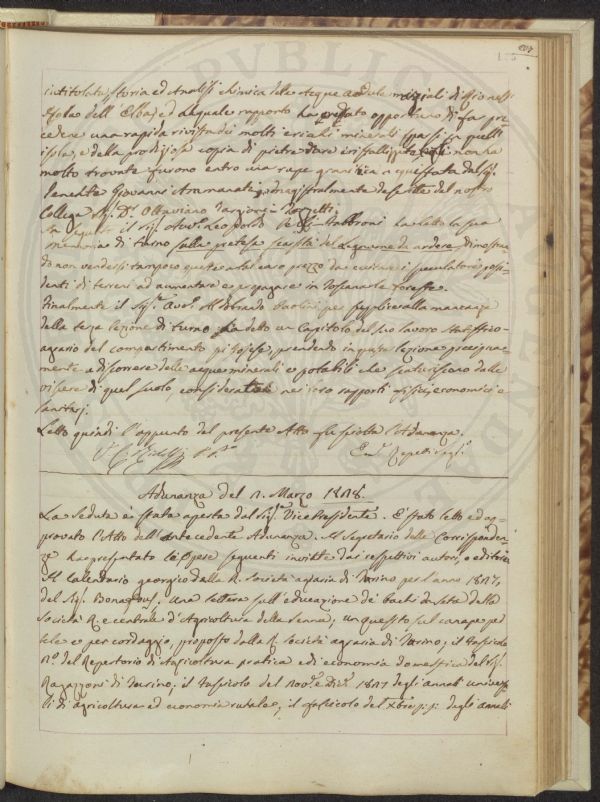 intitolata, Storia ed Analisi chimica delle Acque acidule marziali di Rio nell'
Isola dell'Elba, ed al quale rapporto ha creduto opportuno di far pre-
cedere una rapida rivista dei molti e vari minerali sparsi in quell'
isola, e della prodigiosa copia di pietre dure cristallizzate, che non ha
molto trovate furono entro una rupe granitica a questa del Sig.
Tenente Giovanni Ammannati, magistralmente descritte dal nostro
Collega Sig. Dr. Ottaviano Targioni-Tozzetti.
In seguito il Sig. Avv. Leopoldo Pelli-Fabbroni ha letto la sua
memoria di turno sulla pretesa scarsità del legname da ardere, dimostran-
do non vendersi tampoco questo a tal caro prezzo da eccitare i speculatori possi-
denti di terreni ad aumentare e propagare in Toscana le foreste.
Finalmente il Sig. Avv. Aldobrando Paolini per supplire alla mancanza
della terza lezione di turno, ha detto un Capitolo del suo lavoro Statistico-
agrario del compartimento pistojese, prendendo in questa lezione precisa-
mente a discorrere delle acque minerali e potabili che scaturiscono dalle
viscere di quel suolo, considerate nei loro rapporti fisici, economici e
sanitarj.
Letto quindi l'appunto del presente Atto fu sciolta l'Adunanza.
V. C. Ridolfi P.
E. Repetti Seg.
Adunanza del 2. Marzo 1828.
La Seduta è stata aperta dal Sig. Vice Presidente. È stato letto ed ap-
provato l'Atto dell'Antecedente Adunanza. Il Segretario delle Corrisponden-
ze ha presentato le Opere seguenti inviate dai respettivi autori, o editori:
Il Calendario georgico della R. Società agraria di Torino per l'anno 1827,
del Sig. Bonafous, una lettera sull'educazione de' bachi da Seta della
Società R. e centrale d'Agricoltura della Senna; un quesito sul canape per
tele e per cordaggio, proposto dalla R. Società agraria di Torino; il fascicolo
No. del Repertorio di Agricoltura pratica e di economia domestica del Sig.
Ragazzoni di Torino; il fascicolo del Nov. e Dic. 1827 degli annali univer-
li di agricoltura ed economia rurale; il fascicolo del Xbre p. p. degli annali